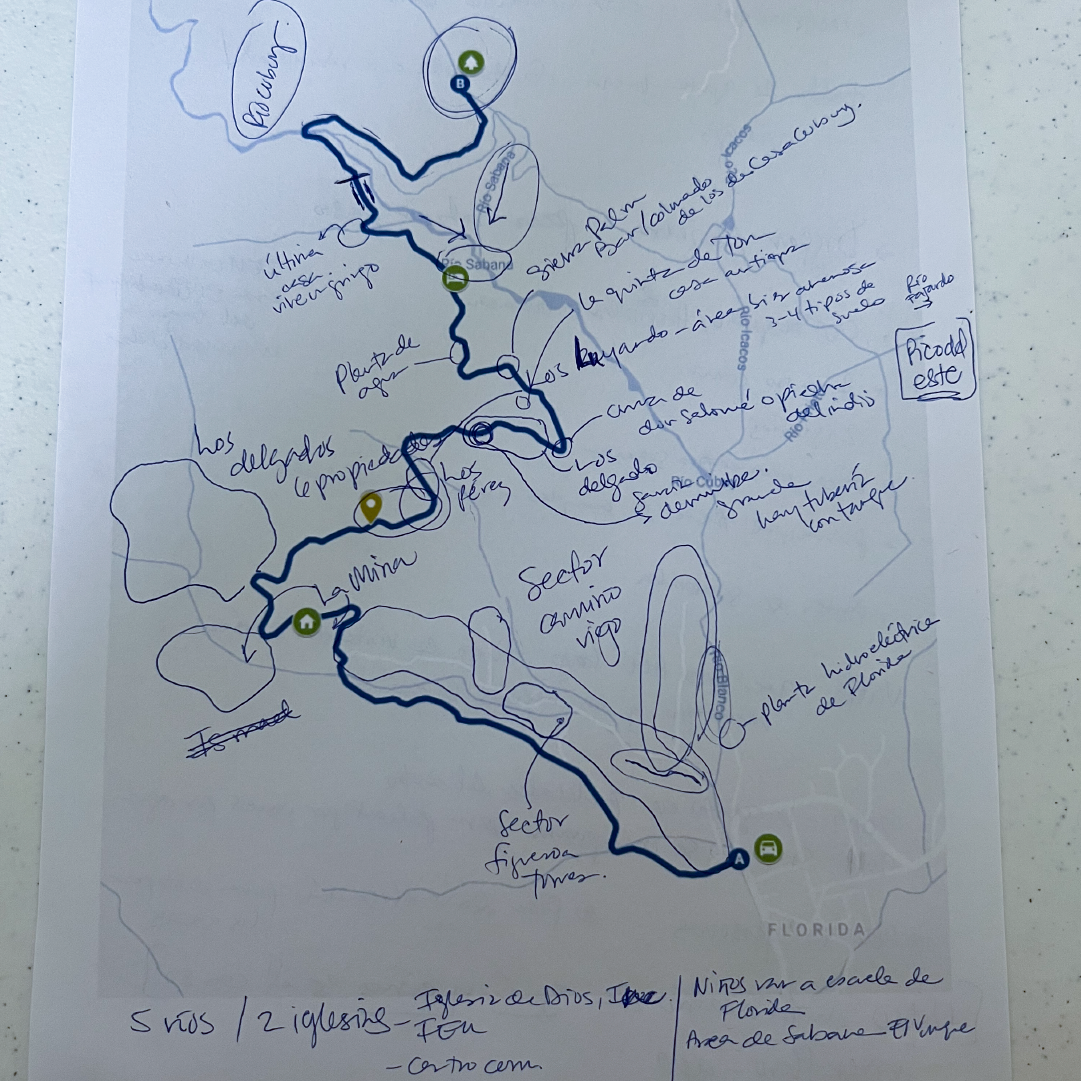 Río cubuy
B
Río Sabana
Río Icacos
Sierra Palm
Bar/colmado
de los de Casa Cubuy.
última
casa
vive un gringo
Río Sabana
la quinta de Tom
casa antigua
Los Rayando - área arenosa
3-4 tipos de
suelo
Río
Fajardo
Río Icacos
Pico del
este
Planta de
agua
curva de
don Salomé o piedra
del indio
Los
delgados
propiedades
Los
Pérez
Los
delgado
derrumbe
grande
hay tubería
con tanque.
Río Cubuy
La Mina
Sector
camino
viejo
Río Blanco
planta hidroeléctrica
de Florida
Ismael
Sector
figueroa
torres.
A
FLORIDA
5 ríos / 2 iglesias - Iglesia de Dios,
IEU
- centro com.
Niños van a escuela de
Florida
Area de Sabana El Yunque